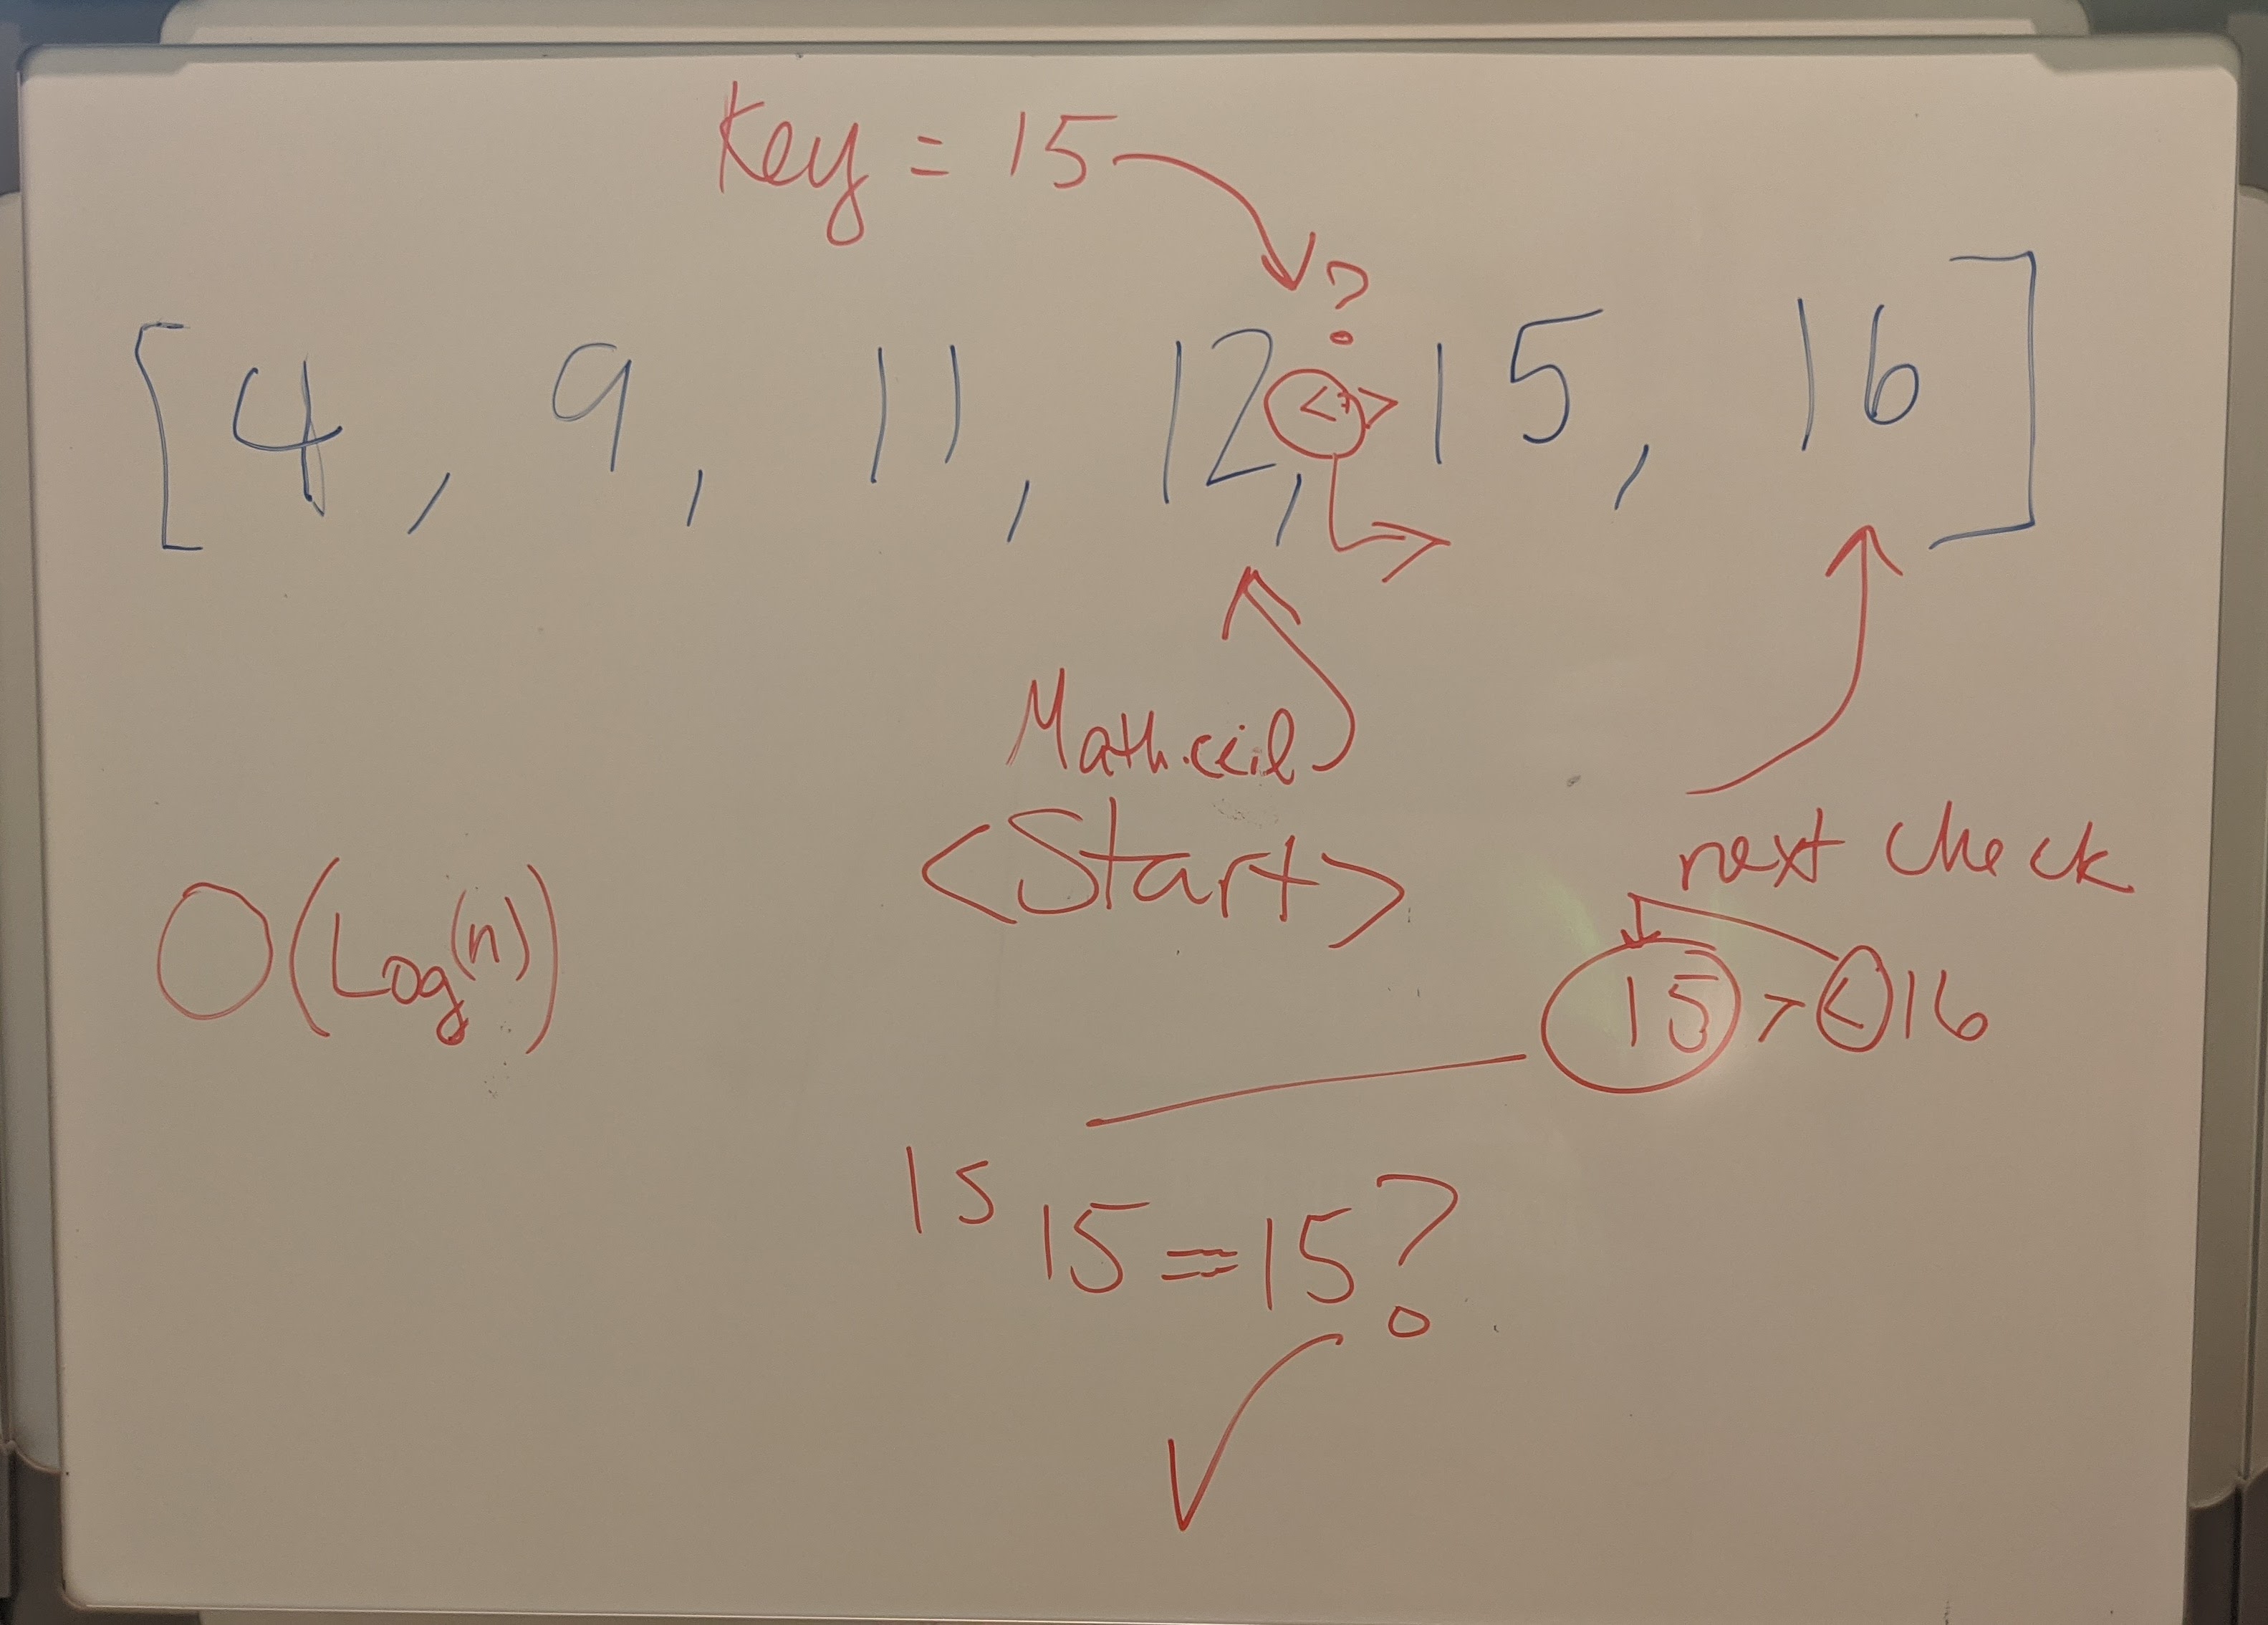 Key = 15
?
[4, 9, 11, 12, <> 15, 16]
Math.ceil
<Start>
next check
O(Log(n))
15 > < 16
Is 15 == 15?